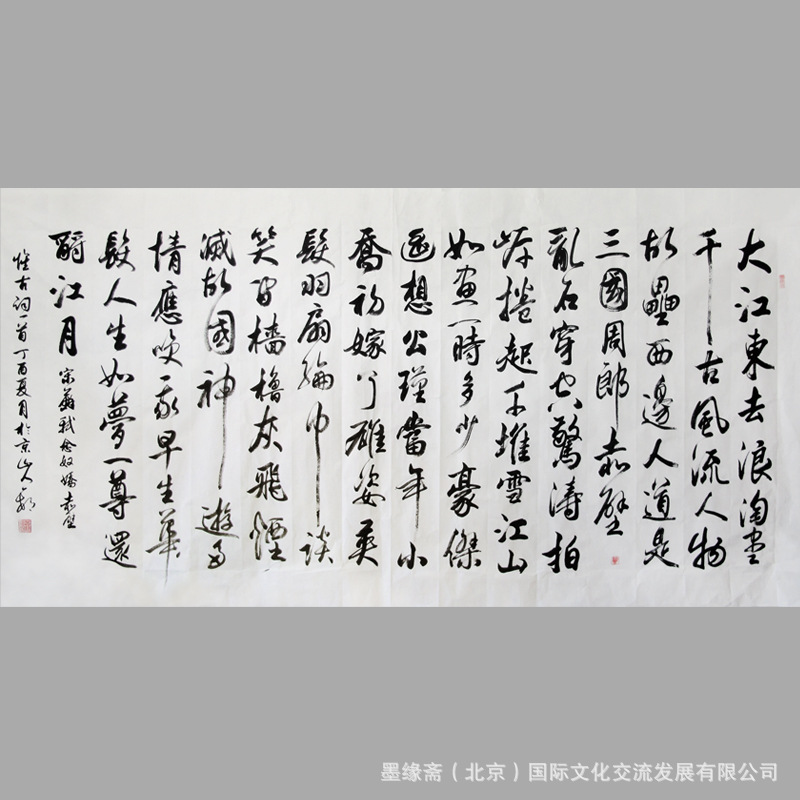 大江東去浪淘盡
千古風流人物
故壘西邊人道是
三國周郎赤壁
亂石穿空驚濤拍
岸捲起千堆雪江山
如畫一時多少豪傑
遥想公瑾當年小
喬初嫁了雄姿英
髮羽扇綸巾談
笑間檣櫓灰飛煙
滅故國神遊多
情應咲我早生華
髮人生如夢一尊還
酹江月 宋蘇軾念奴嬌赤壁
古詞一首丁酉夏月於京
墨缘斋（北京）国际文化交流发展有限公司